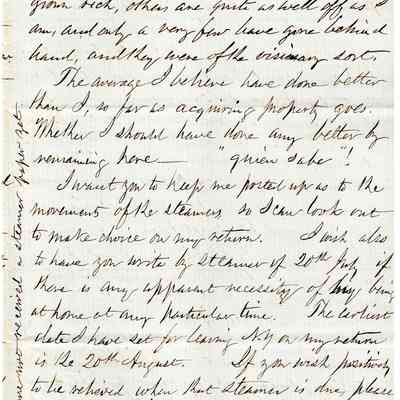 grown rich, others are quite as well off as I
am, and only a very few have gone behind
hand, and they were of the visionary sort.
The average I believe have done better
than I, so far as acquiring property goes.
Whether I should have done any better by
remaining here — "quien sabe"!
I want you to keep me posted up as to the
movements of the steamers so I can look out
to make choice on my return. I wish also
to have you write by steamer of 20th July if
there is any apparent necessity of my being
at home at any particular time. The earliest
date I have set for leaving NY on my return
is the 20th August. If you wish positively
to be relieved when that steamer is due, please
me not received a steamer paper yet